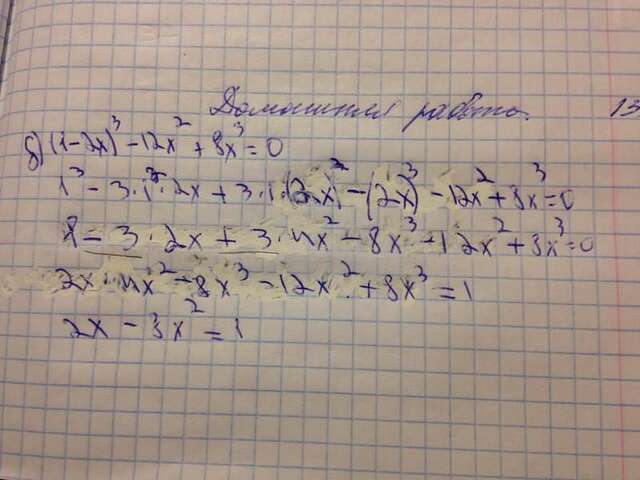 Домашняя работа. 13
б) (1-2x)³ - 12x² + 8x³ = 0
1³ - 3·1²·2x + 3·1·(2x)² - (2x)³ - 12x² + 8x³ = 0
1 - 3·2x + 3·4x² - 8x³ - 12x² + 8x³ = 0
2x·4x² - 8x³ - 12x² + 8x³ = 1
2x - 3x² = 1